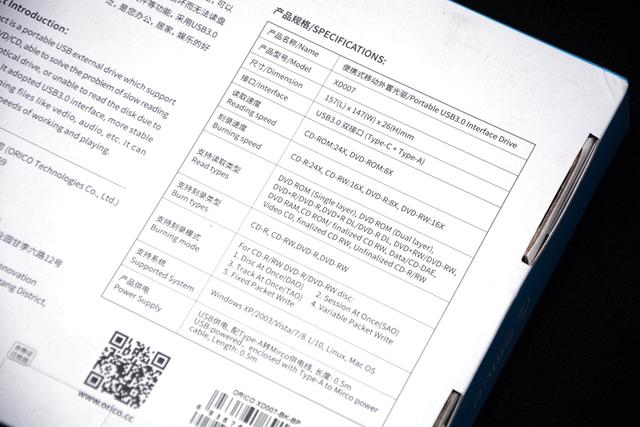 可以
环而无法读盘
牛等功能, 采用USB3.0
是, 是您办公, 居家, 娱乐的好
ct Introduction:
ct is a portable USB external drive which support
VD/CD, able to solve the problem of slow reading
ptical drive, or unable to read the disk due to
It adopted USB3.0 interface, more stable
ng files like vedio, audio, etc. It can
needs of working and playing.
司 (ORICO Technologies Co., Ltd.)
59
业园甘李六路12号
nnovation
tang District,
合格证
已检验
www.orico.cc
产品规格/SPECIFICATIONS:
产品名称/Name 便携式移动外置光驱/Portable USB3.0 Interface Drive
产品型号/Model XD007
尺寸/Dimension 157(L) x 147(W) x 26(H)mm
接口/Interface USB3.0 双接口 (Type-C + Type-A)
读取速度
Reading speed CD-ROM:24X, DVD-ROM:8X
刻录速度
Burning speed CD-R:24X, CD-RW:16X, DVD-R:8X, DVD-RW:16X
支持读取类型
Read types
DVD ROM (Single layer), DVD ROM (Dual layer),
DVD+R/DVD-R, DVD+R DL/DVD-R DL, DVD+RW/DVD-RW,
DVD RAM,CD ROM/ finalized CD RW, Data/CD-DAE,
Video CD, finalized CD RW, Unfinalized CD-R/RW
支持刻录类型
Burn types CD-R, CD-RW,DVD-R,DVD-RW
支持刻录模式
Burning mode
For CD-R/RW DVD-R/DVD-RW disc:
1. Disc At Once(DAO) 2. Session At Once(SAO)
3. Track At Once(TAO) 4. Variable Packet Write
5. Fixed Packet Write
支持系统
Supported System Windows XP/2003/Vista/7/8.1/10, Linux, Mac OS
产品供电
Power Supply
USB供电, 配Type-A转Mirco供电线, 长度: 0.5m
USB-powered, enclosed with Type-A to Mirco power
cable, Length: 0.5m
ORICO XD007-BK-BP